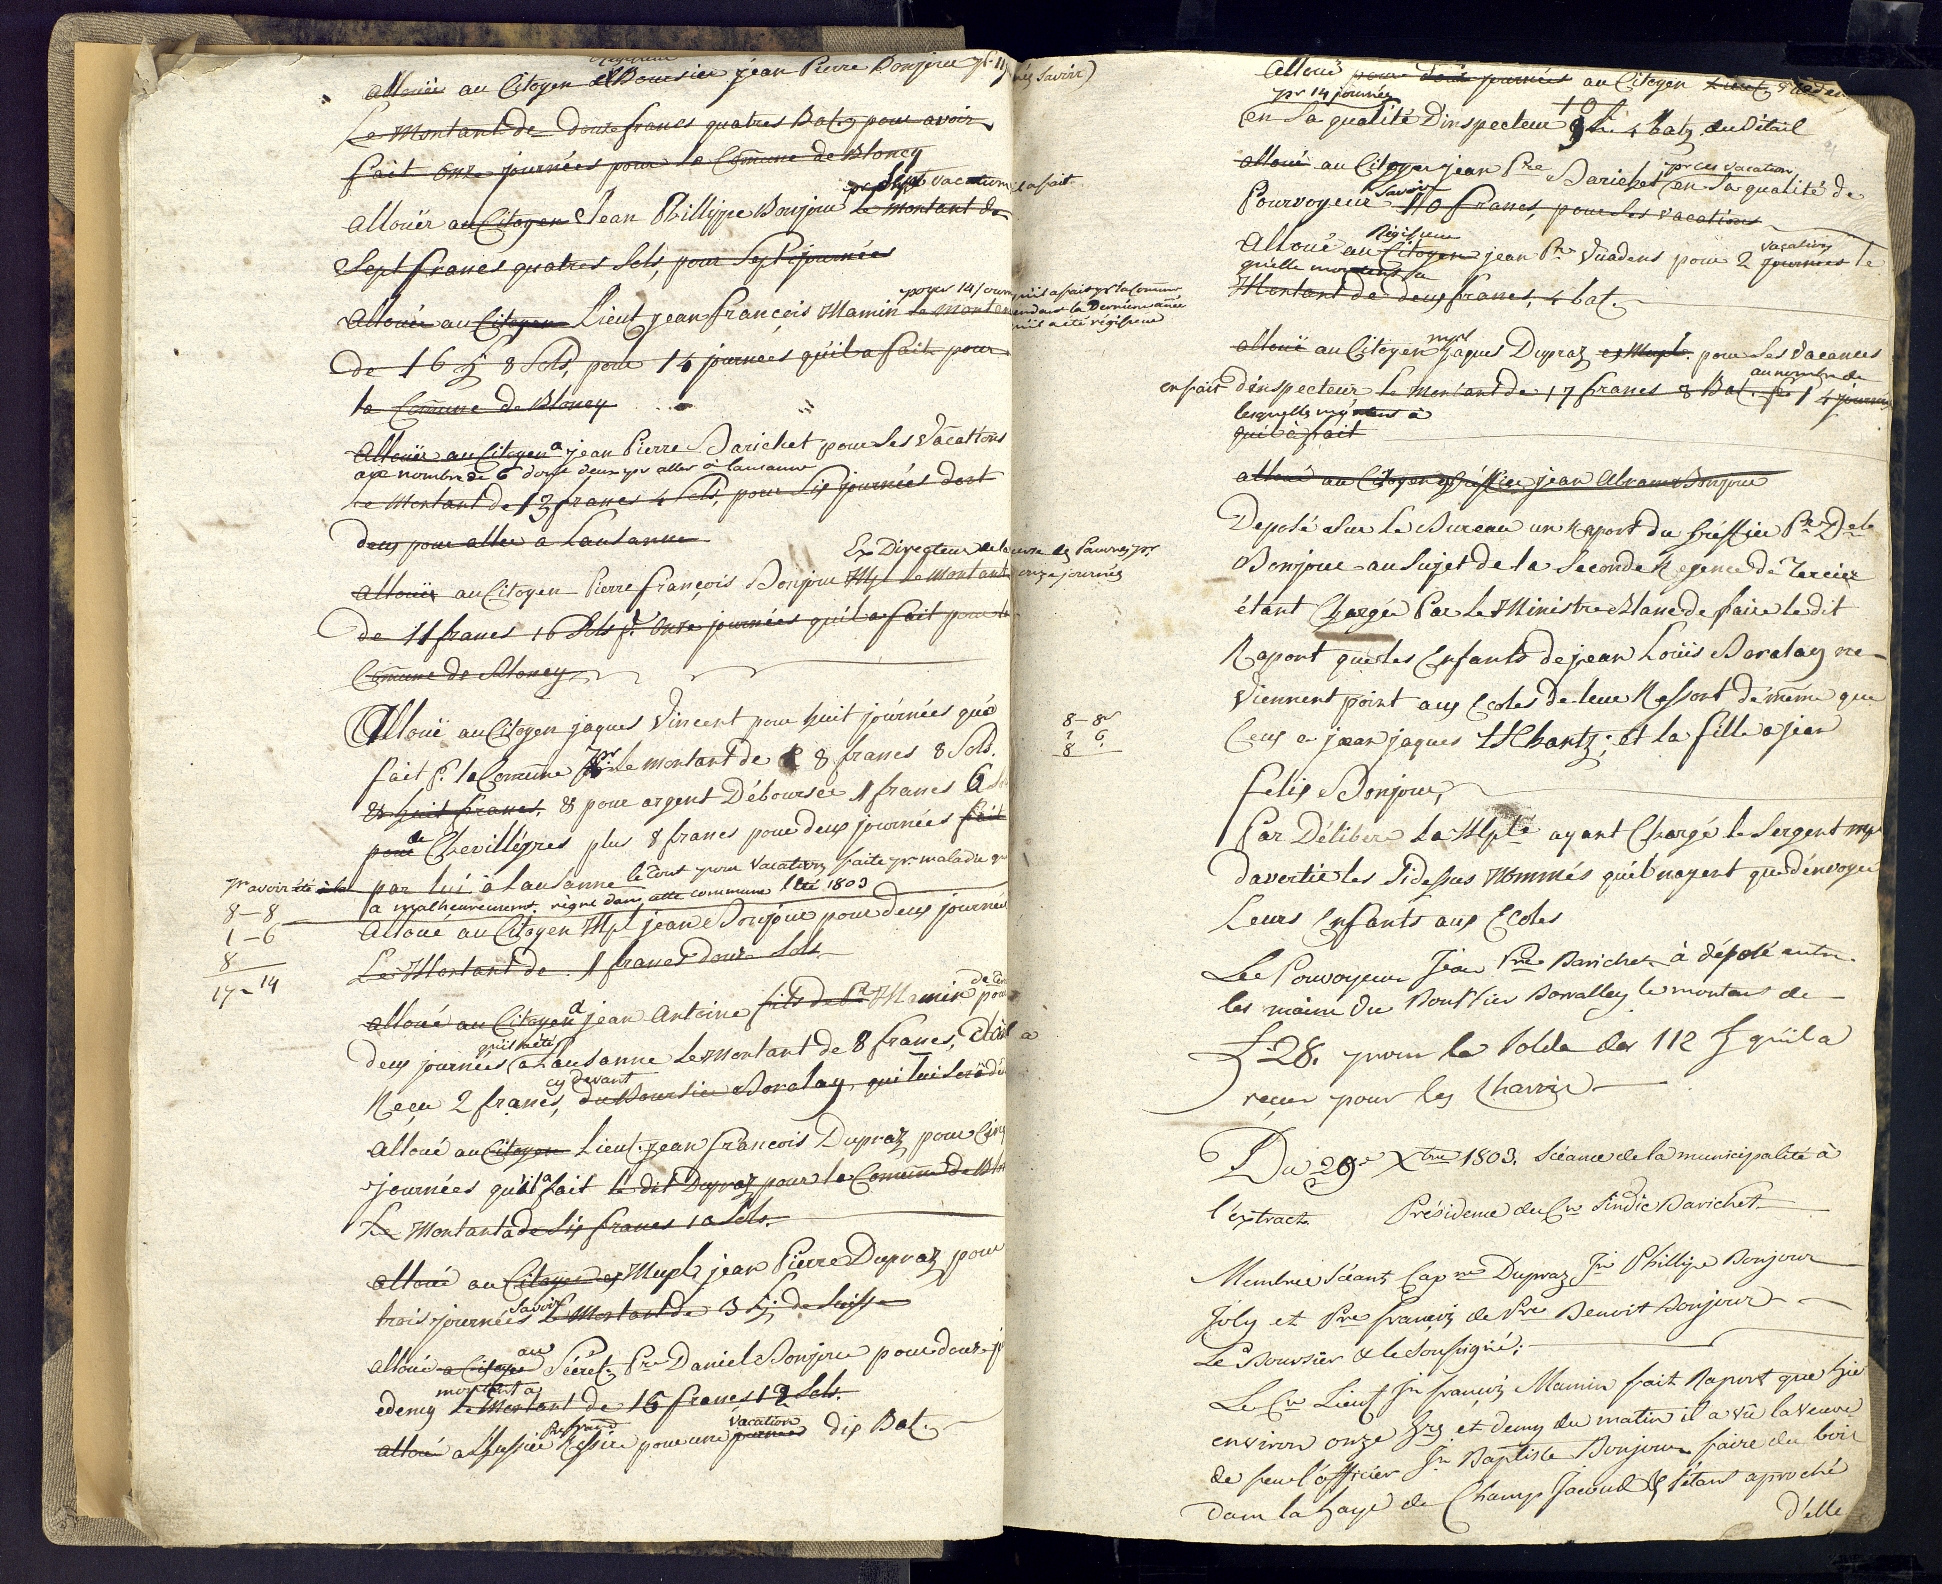 Alloüer au Citoyen Boursier jean Pierre Bonjour
Le Montant de douze francs quatres Batz pour avoir
fait onze journées pour la Comune de Bloney
pr sept vacations
Allouër au Citoyen Jean Phillippe Bonjour le montant de
Sept francs quatres Sols, pour Sept journées
pour 14 journ
Allouër au Citoyen Lieut jean françois Mamin le montant
de 16 fr 8 Sols, pour 14 journées qu'il a fait pour
la Comune de Bloney
Allouër au Citoyen a jean Pierre Darichet pour Ses Vacations
au nombre de 6 dont deux pr aller à Lausanne
Le Montant de 13 francs 4 Sols, pour Six journées dont
deux pour aller a Lausanne
Ex Directeur de la
Allouër au Citoyen Pierre françois Bonjour Mpl le montant
de 11 francs 16 Sols pr. Onze journées qu'il a fait pour la
Comune de Bloney
Alloué au Citoyen jaques Vincent pour huit journées qu'a
fait pr. la Comune pr le montant de 8 francs 8 Sols.
& huit francs, & pour argent Déboursée 1 francs 6 Sols
pour de Chevillègres plus 8 francs pour deux journées fait
pr avoir été à la par lui à Lausanne le tout pour vacations faite pr maladie qui
a malheureusement régné dans cette commune l'été 1803
8-8
1-6
8
17-14
Alloué au Citoyen Mpl jean Bonjour pour deux journées
Le Montant de 1 francs douze Sols
alloué au Citoyen a jean Antoine fils de Pre Mamin pour
deux journées qu'il a été a Lausanne Le Montant de 8 francs,
cy devant
Reçu 2 francs, du Boursier Dovalay, qui lui
Alloué au Citoyen Lieut. jean francois Dupraz pour Cinq
journées qu'il a fait le dit Dupraz pour la Comune de Blo
Le Montant de Six francs 10 Sols.
alloué au Citoyen ex Mupl jean Pierre Dupraz pour
trois journées Savoir Le Montant de 3 fr. de Suisse
alloué a Citoyen au Sécret. Pre Daniel Bonjour pour douze
montant a
edemy Le Montant de 15 francs 12 Sols.
alloué a pour une journée vacation dix Bat.
nées Savoir)
a fait
qu'il a fait pr la Comune
endant la Dernière année
qu'il a été régisseur
onze journées
8-8
1 6
8
Alloué pour douze journées au Citoyen
pr 14 journées
en Sa qualité D'inspecteur 10 fr 4 batz du Détail
alloué au Citoyen jean Pre Darichet pr ces vacation en Sa qualité de
Pourvoyeur Savoir 110 francs, pour Ses vacations
Alloué au Citoyen Régisseur jean Pre Vuadens pour 2 journées vacations le
Montant de deux francs, 4 bat.
alloué au Citoyen mpl Jaques Dupraz ex Mupl. pour Ses Vacances
au nombre de
en fait d'inspecteur Le Montant de 17 francs 8 Bat. pr 14 journ
qu'il a fait
alloué au Citoyen Gréffier jean Abram Bonjour
Deposé Sur Le Bureau un Raport du Gréffier Pre Del
Bonjour au Sujet de la Seconde Regence de Tercier
étant Chargée Par Le Ministre Blanc de faire le dit
Raport que les Enfants de jean Loüis Dovalay ne
Viennent point aux Ecoles de leur Ressort de même que
Ceux a jean jaques Chantz; et la fille a jean
felix Bonjour,
Par Délibéré La Mplté ayant Chargé le Sergent mpl
davertir les Sidessus Nommés qu'il nayent que d'envoyer
Leurs Enfants aux Ecoles
Le Pourvoyeur Jean Pre Darichet à déposé entre
les mains du Boursier Dovalley le montant de
£ 28. pour le Solde des 112 fr qu'il a
reçeu pour les Charrois
Du 29e Xbre 1803. Séance de la municipalité à
l'extract. Présidence du Cn Sindic Darichet
Membres Séant Capne Dupraz Jn Phillipe Bonjour
Joly et Pre françois de Pre Benoit Bonjour
Le Boursier & le Soussigné:
Le Cn Lieut Jn françois Mamin fait Raport que hier
environ onze hrs et demy du matin il a vû la veuve
de feu l'officier Jn Baptiste Bonjour faire du bois
dans la haye de Champ Jacoud & s'étant aproché
d'elle